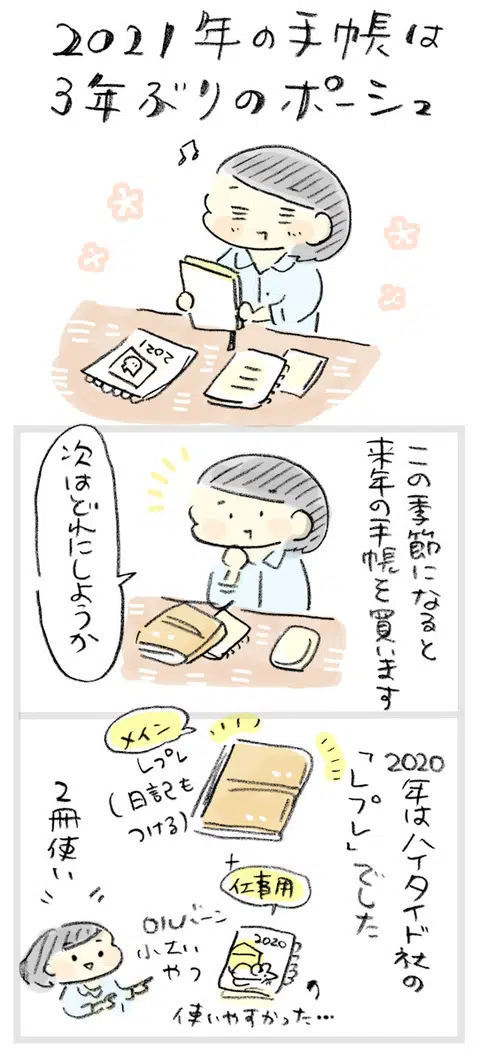 2021年の手帳は
3年ぶりのポーシュ
2021
この季節になると
来年の手帳を買います
次はどれにしようか
2020
年はハイタイド社の
「レプレ」でした
メイン
レプレ
(日記も
つける)
+
仕事用
2020
ロルバーン
小さい
やつ
使いやすかった…
2冊使い